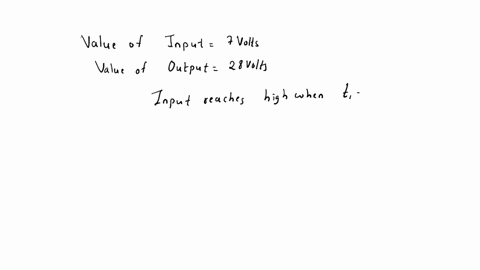 Value of Input = 7 Volts
Value of Output = 28 Volts
Input reaches high when t,